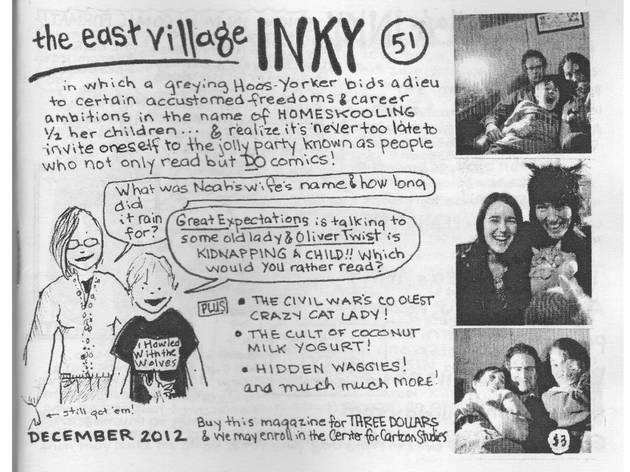 the east village INKY 51
in which a greying Hoos-Yorker bids adieu
to certain accustomed freedoms & career
ambitions in the name of HOMESKOOLING
½ her children... & realize it's never too late to
invite oneself to the jolly party known as people
who not only read but DO comics!
What was Noah's wife's name & how long
did
it rain
for?
Great Expectations is talking to
some old lady & Oliver Twist is
KIDNAPPING A CHILD!! Which
would you rather read?
PLUS
• THE CIVIL WAR'S COOLEST
CRAZY CAT LADY!
• THE CULT OF COCONUT
MILK YOGURT!
• HIDDEN WAGGIES!
and much much MORE!
I Howled
With the
Wolves
← still got 'em!
DECEMBER 2012
Buy this magazine for THREE DOLLARS
& we may enroll in the Center for Cartoon Studies
$3